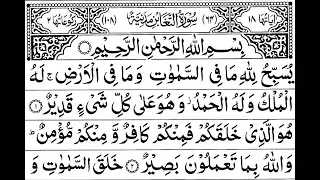 اٰيَاتُهَا ١٨ (٦٤) سُوْرَةُ التَّغَابُنِ مَدَنِيَّةٌ (١٠٨) رُكُوْعَاتُهَا ٢
بِسْمِ اللّٰهِ الرَّحْمٰنِ الرَّحِيْمِ
يُسَبِّحُ لِلّٰهِ مَا فِى السَّمٰوٰتِ وَمَا فِى الْاَرْضِ ۚ لَهُ
الْمُلْكُ وَلَهُ الْحَمْدُ ۫ وَهُوَ عَلٰى كُلِّ شَىْءٍ قَدِيْرٌ ۝١
هُوَ الَّذِىْ خَلَقَكُمْ فَمِنْكُمْ كَافِرٌ وَّ مِنْكُمْ مُّؤْمِنٌ ؕ
وَاللّٰهُ بِمَا تَعْمَلُوْنَ بَصِيْرٌ ۝ خَلَقَ السَّمٰوٰتِ وَ